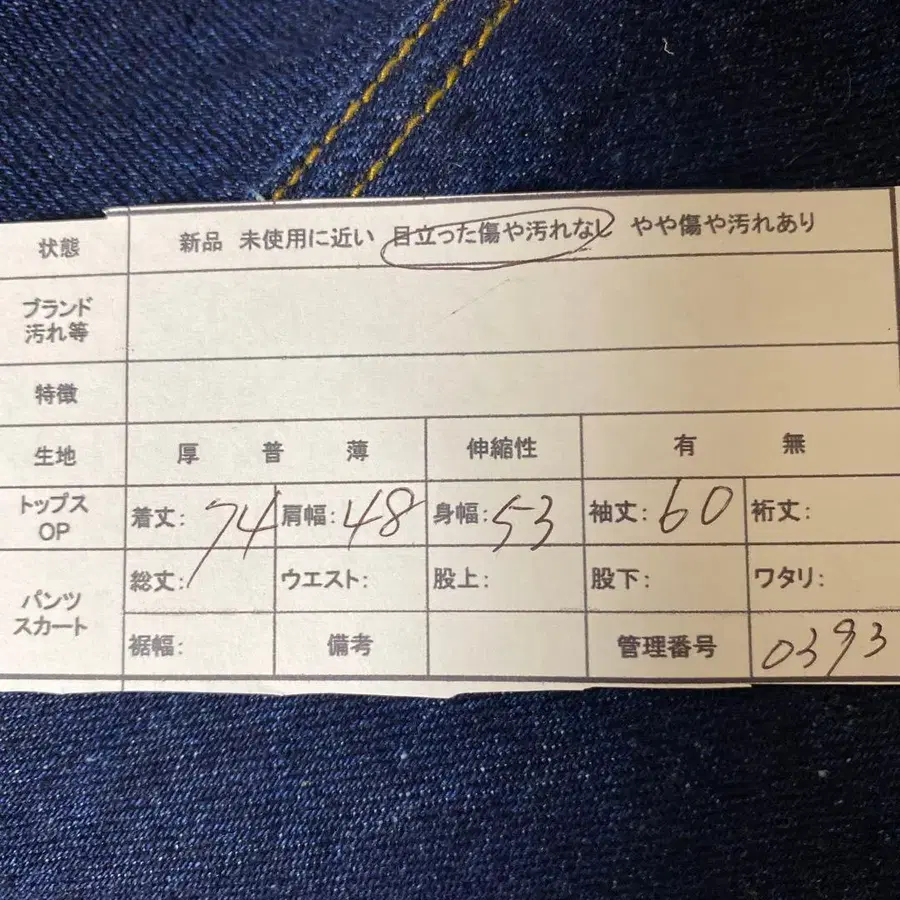 状態 新品 未使用に近い 目立った傷や汚れなし やや傷や汚れあり
ブランド
汚れ等
特徴
生地 厚 普 薄 伸縮性 有 無
トップス
OP
着丈: 74 肩幅: 48 身幅: 53 袖丈: 60 裄丈:
パンツ
スカート
総丈: ウエスト: 股上: 股下: ワタリ:
裾幅: 備考 管理番号 0393